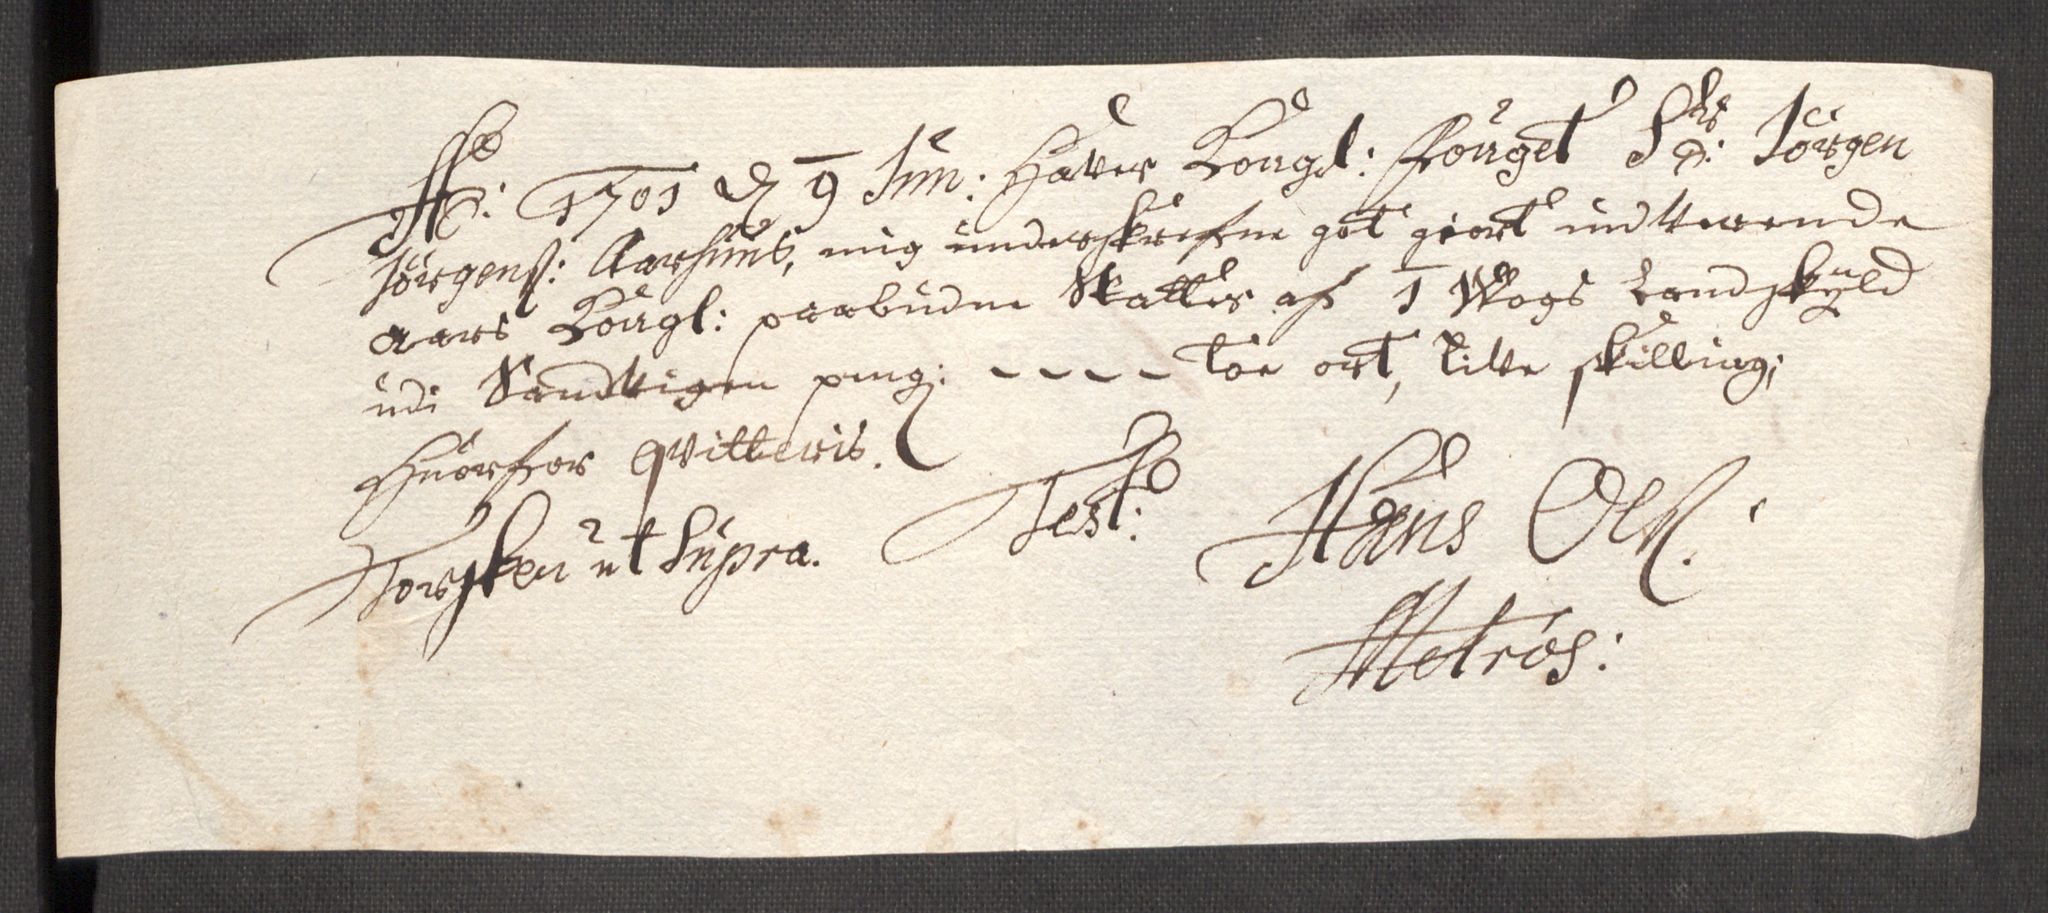 Ao: 1701 d 9 Jun: Hafver Kongl: fouget Sr: Jörgen
Jörgenß: Aarhuus, mig underskrefne got giort indverende
aars Kongl: paabudne Skatter af 1 Wogs Landskyld
udi Sandvigen peng: - - - - Toe ort, tilve skilling;
Huorfor qvitteris.
Torsken ut Supra. Test: Hans Olß:
Metros: